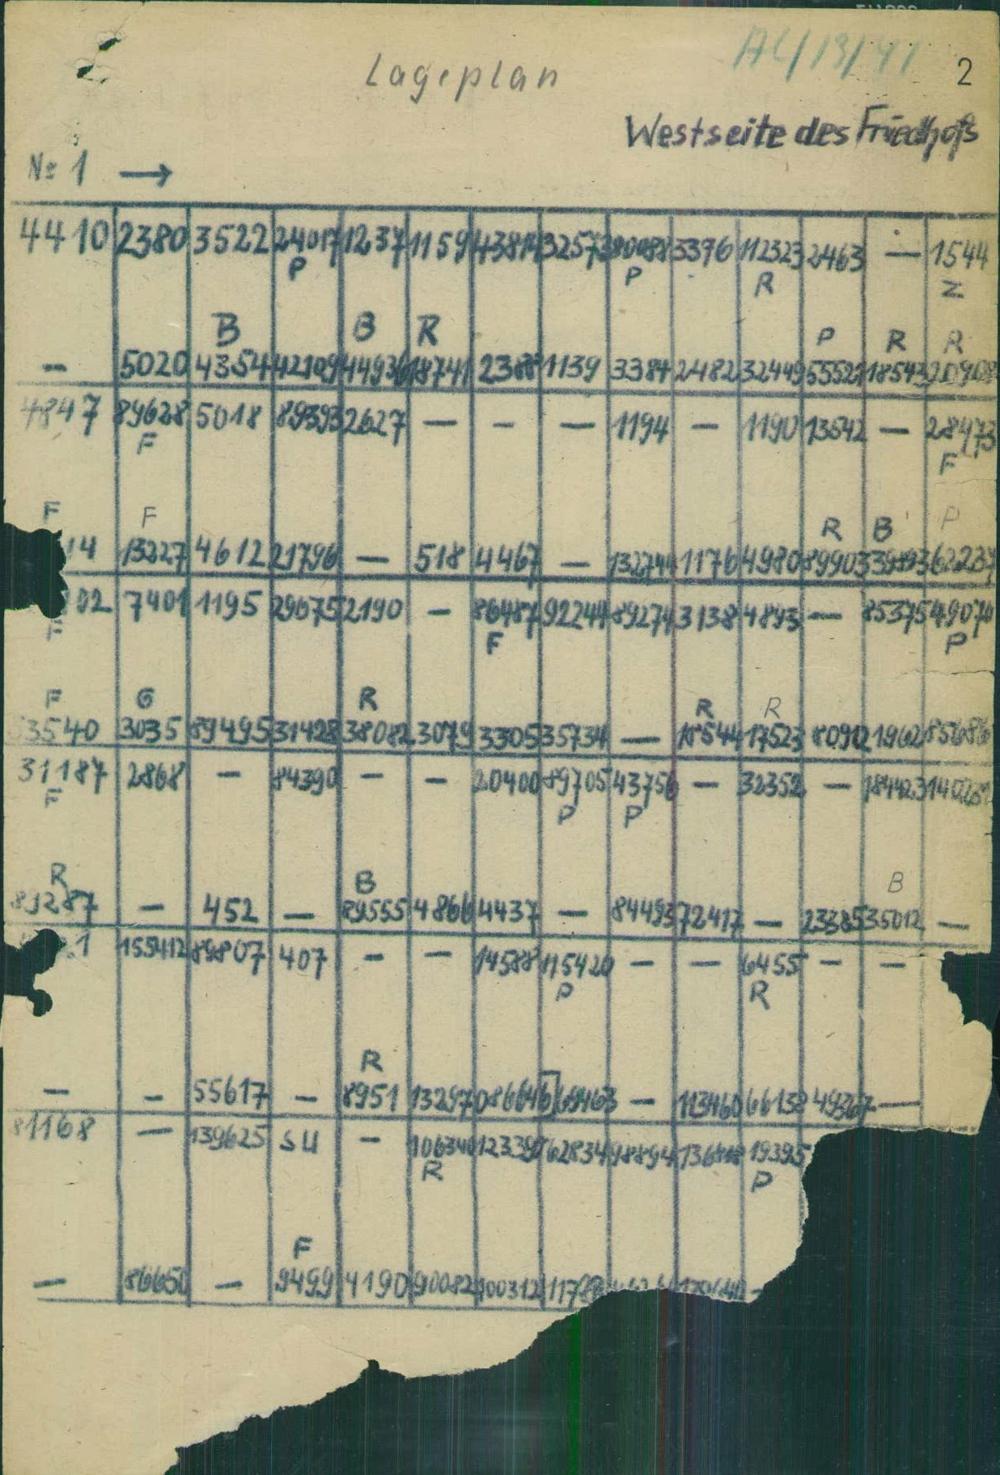 Lageplan
2
Westseite des Friedhofs
№ 1 →
4410 2380 3522 24017 1237 1159 3396 112323 2463 — 1544
P P R Z
B B R P R R
— 5020 4354 42109 44936 18741 2388 1139 3384 2482 32449 18543
4847 89628 5018 89393 2627 — — — 1194 — 1190 13542 — 28473
F F
F F R B P
14 13227 4612 21796 — 518 4467 — 132744 1176 4980 89903 62237
02 7401 1195 29675 2190 — 86487 92244 89274 3138 4893 — 85375 49070
F F P
F G R R R
3540 3035 89495 31428 38082 3079 3305 35734 — 18544 17523 80912 1962
31187 2868 — 84390 — — 20400 89705 43756 — 32352 — 18442
F P P
R B B
— 452 — 89555 4866 4437 — 84493 72417 — 23385 35012 —
1 155412 89807 407 — — 14588 115420 — — 6455 — —
P R
R
— — 55617 — 8951 13297 086646 69463 — 113460 66132 49367 —
81168 — 139625 SU — 106340 123390 62834 98894 19395
R P
F
— 86650 — 9499 4190 90082 100312